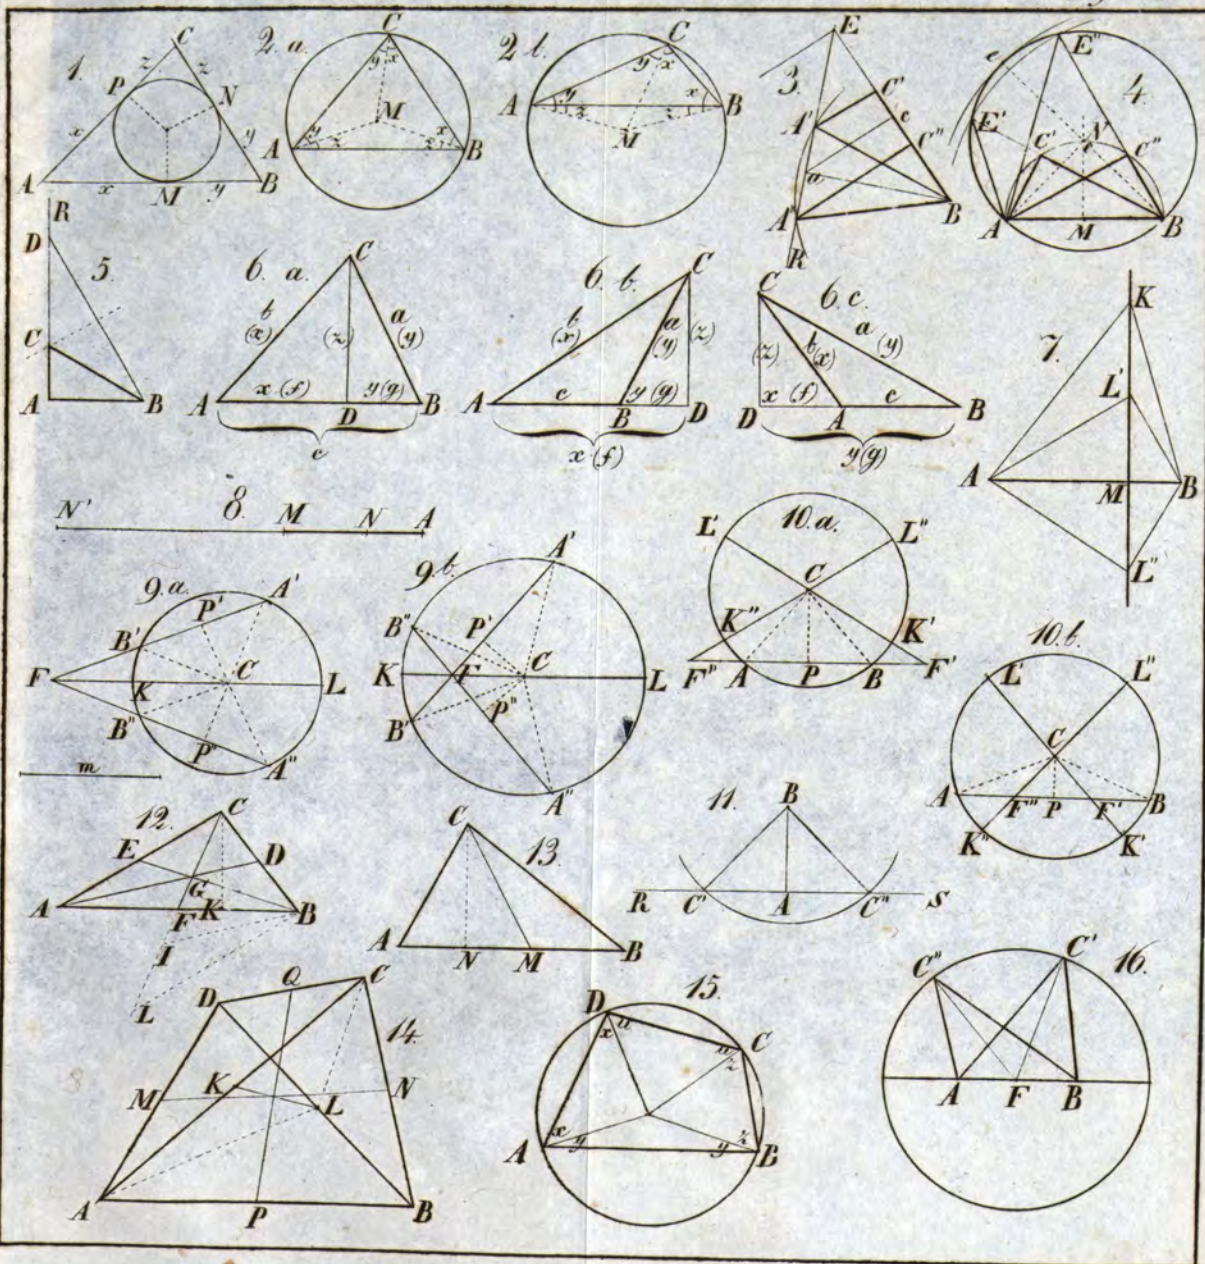 1.
C
z
z
P
N
x
y
A
x
M
y
B
2. a.
C
y x
M
y
z
x
z
A
B
2 b.
C
y x
A
y
z
x
z
B
M
3.
E
C'
c
A'
C"
a
A"
B
R
4.
E"
e
E'
N'
C'
c
C"
A
M
B
5.
R
D
C
A
B
6. a.
C
b
(x)
(z)
a
(y)
x (f)
y (g)
A
D
B
c
6. b.
C
b
(x)
a
(y)
(z)
A
c
B
y (g)
D
x (f)
6. c.
C
a (y)
b (x)
(z)
D
x (f)
A
c
B
y (g)
7.
K
L'
A
M
B
L"
8.
N'
M
N
A
9. a.
A'
P'
B'
F
K
C
L
B"
P"
A"
m
9. b.
A'
B"
P'
K
F
C
L
P"
B'
A"
10. a.
L'
L"
C
K"
K'
F"
A
P
B
F'
10. b.
L'
L"
C
A
F"
P
F'
B
K"
K'
11.
B
R
C'
A
C"
S
12.
C
E
D
G
A
F
K
B
I
L
13.
C
A
N
M
B
14.
Q
D
C
M
K
L
N
A
P
B
15.
D
x
a
a
C
z
x
y
y
z
A
B
16.
C"
C'
A
F
B